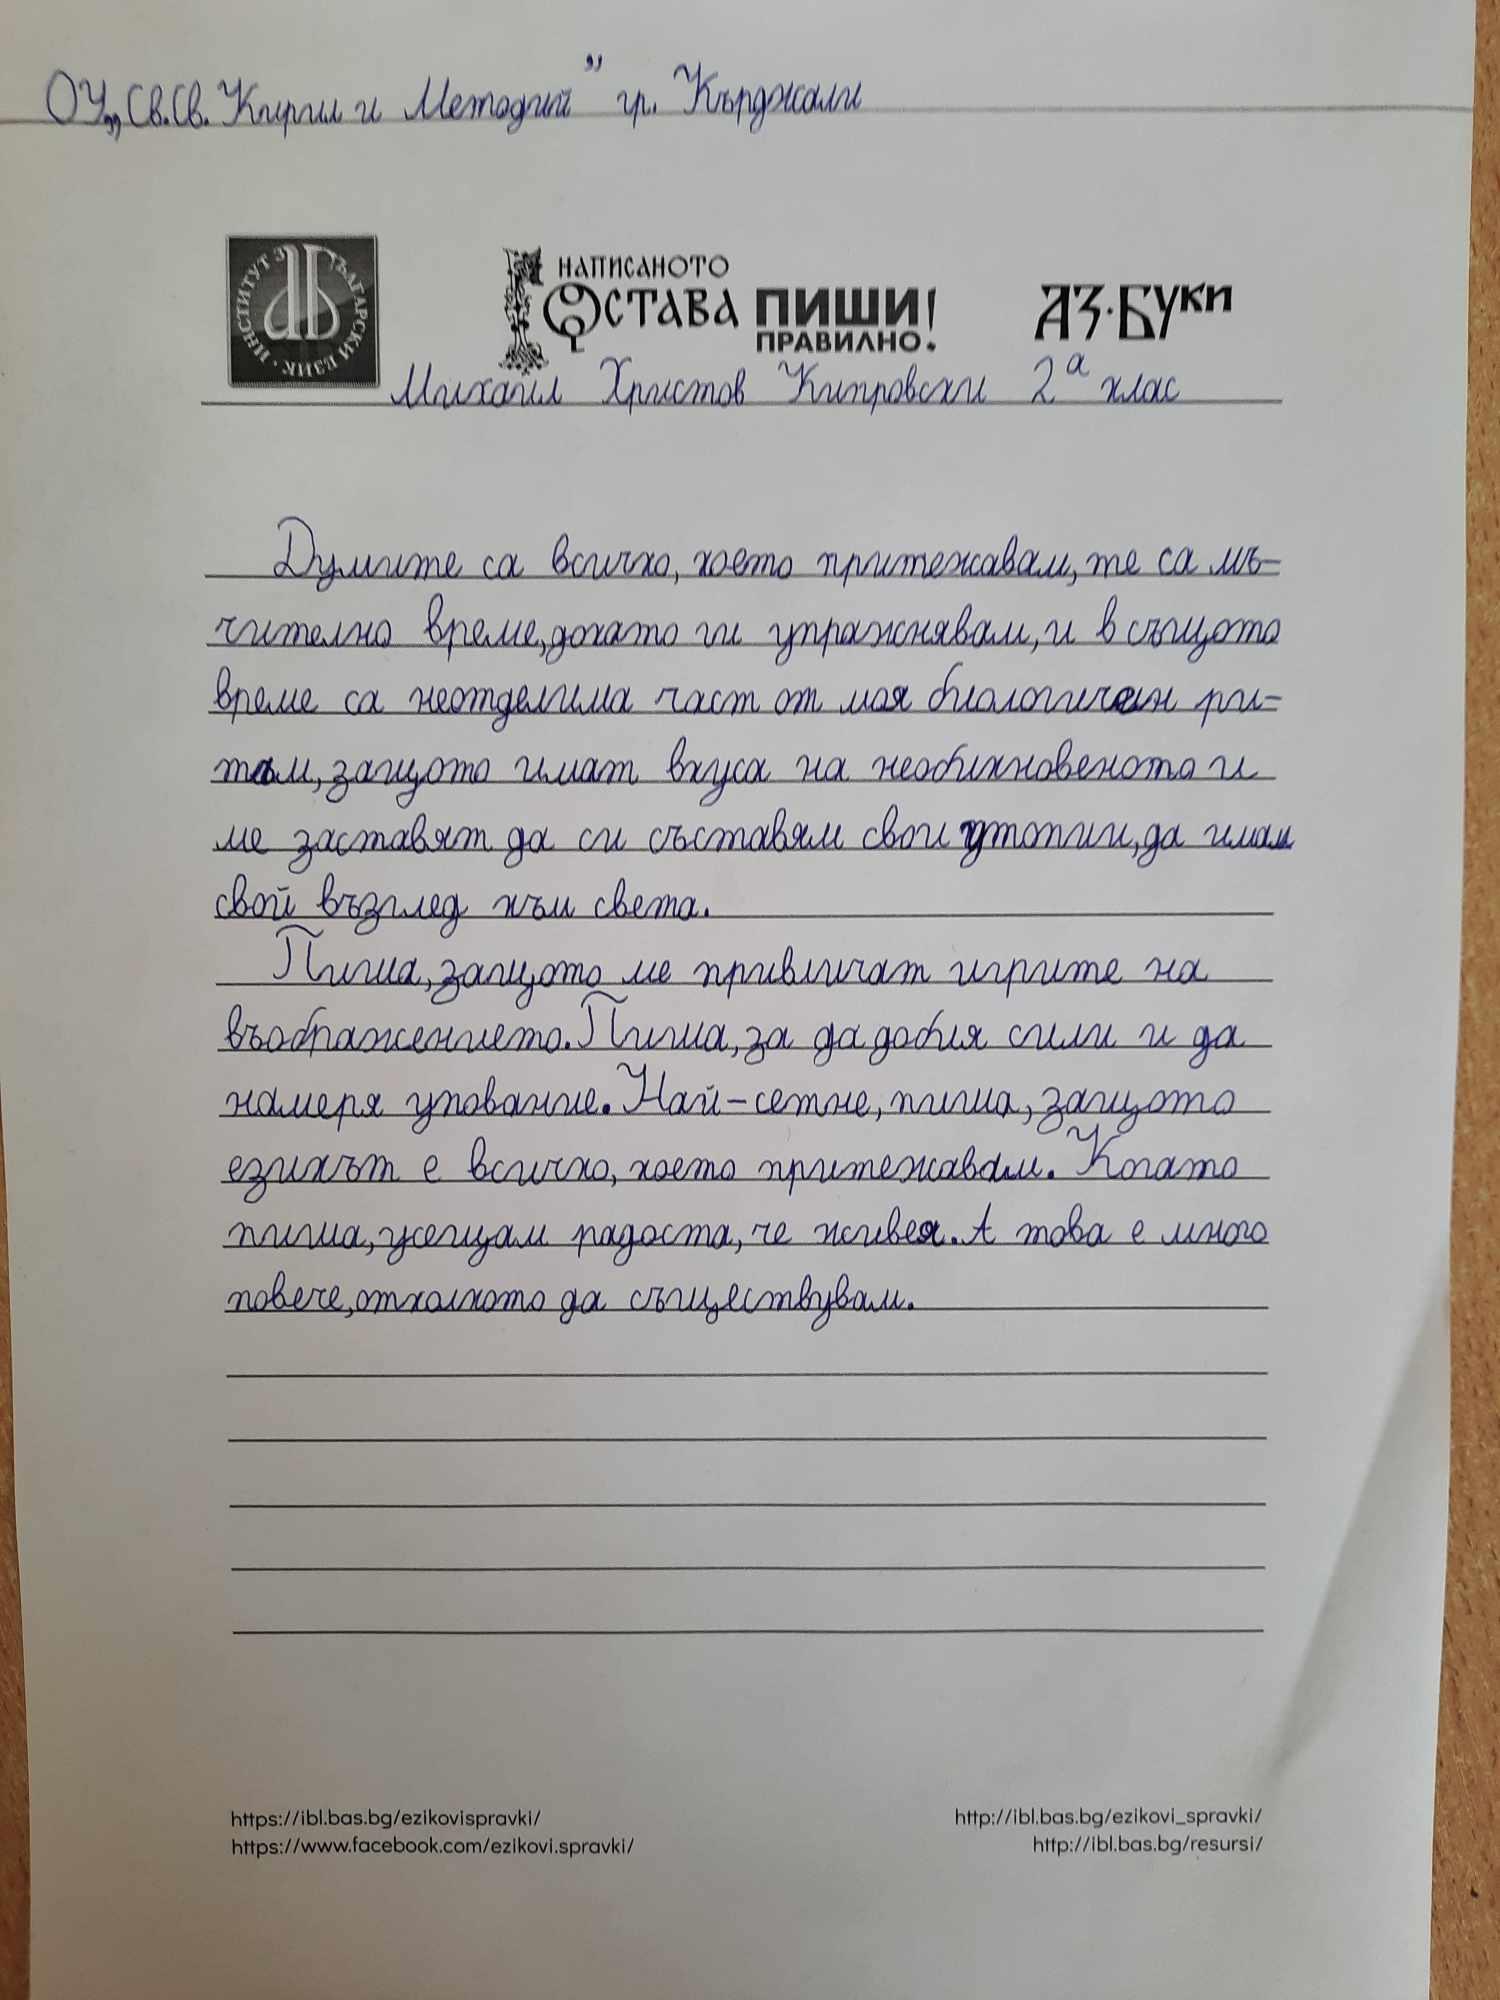 ОУ„Св.Св. Кирил и Методий” гр. Кърджали
ИНСТИТУТ ЗА БЪЛГАРСКИ ЕЗИК
НАПИСАНОТО
ОСТАВА ПИШИ!
ПРАВИЛНО.
АЗ·БУКИ
Михаил Христов Кипровски 2а клас
Думите са всичко, което притежавам, те са мъ-
чително време, докато ги упражнявам, и в същото
време са неотделима част от моя биологичен ри-
тъм, защото имат вкуса на необикновеното и
ме заставят да си съставям свои утопии, да имам
свой възглед към света.
Пиша, защото ме привличат игрите на
въображението. Пиша, за да добия сили и да
намеря упование. Най-сетне, пиша, защото
езикът е всичко, което притежавам. Когато
пиша, усещам радоста, че живея. А това е много
повече, отколкото да съществувам.
https://ibl.bas.bg/ezikovispravki/
https://www.facebook.com/ezikovi.spravki/
http://ibl.bas.bg/ezikovi_spravki/
http://ibl.bas.bg/resursi/